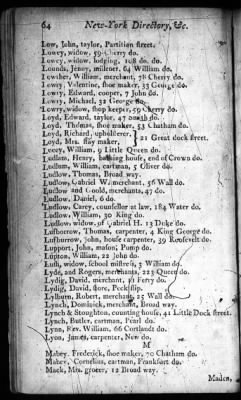 64 New-York Directory, &c.
Low, John, taylor, Partition street.
Lowey, widow, 59 Cherry do.
Lowey, widow, lodging, 108 do. do.
Lounds, Jeney, milliner, 84 William do.
Lowther, William, merchant, 78 Cherry do.
Lowry, Valentine, shoe maker, 33 George do.
Lowry, Edward, cooper, 7 John do.
Lowry, Michael, 32 George do.
Lowry, widow, shop keeper, 59 Cherry do.
Loyd, Edward, taylor, 47 do.
Loyd, Thomas, shoe maker, 53 Chatham do.
Loyd, Richard, upholsterer,
Loyd, Mrs. stay maker, } 21 Great dock street.
Lucey, William, 9 Little Queen do.
Ludlam, Henry, house, end of Crown do.
Ludlum, William, cartman, 5 Oliver do.
Ludlow, Thomas, Broad way.
Ludlow, Gabriel W. merchant, 56 Wall do.
Ludlow and Gould, merchants, 47 do.
Ludlow, Daniel, 6 do.
Ludlow, Carey, counsellor at law, 184 Water do.
Ludlow, William, 30 King do.
Ludlow, widow, of Gabriel H. 13 Duke do.
Lufborrow, Thomas, carpenter, 4 King George do.
Lufburrow, John, house carpenter, 39 Roosevelt do.
Lupport, John, mason, Pump do.
Lupton, William, 22 John do.
Lush, widow, school mistress, 5 William do.
Lyde, and Rogers, merchants, 223 Queen do.
Lydig, David, merchant, 21 Ferry do.
Lydig, David, store, Peck slip.
Lylburn, Robert, merchant, 25 Wall do.
Lynch, Dominick, merchant, Broad way.
Lynch & Stoughton, counting house, 41 Little Dock street.
Lynch, Butler, cartman, Pearl do.
Lynn, Rev. William, 66 Cortlandt do.
Lyon, James, carpenter, New do.
M
Mabey, Frederick, shoe maker, 70 Chatham do.
Mabey, Cornelius, cartman, Frankfort do.
Mack, Mrs. grocer, 12 Broad way.
Maden,